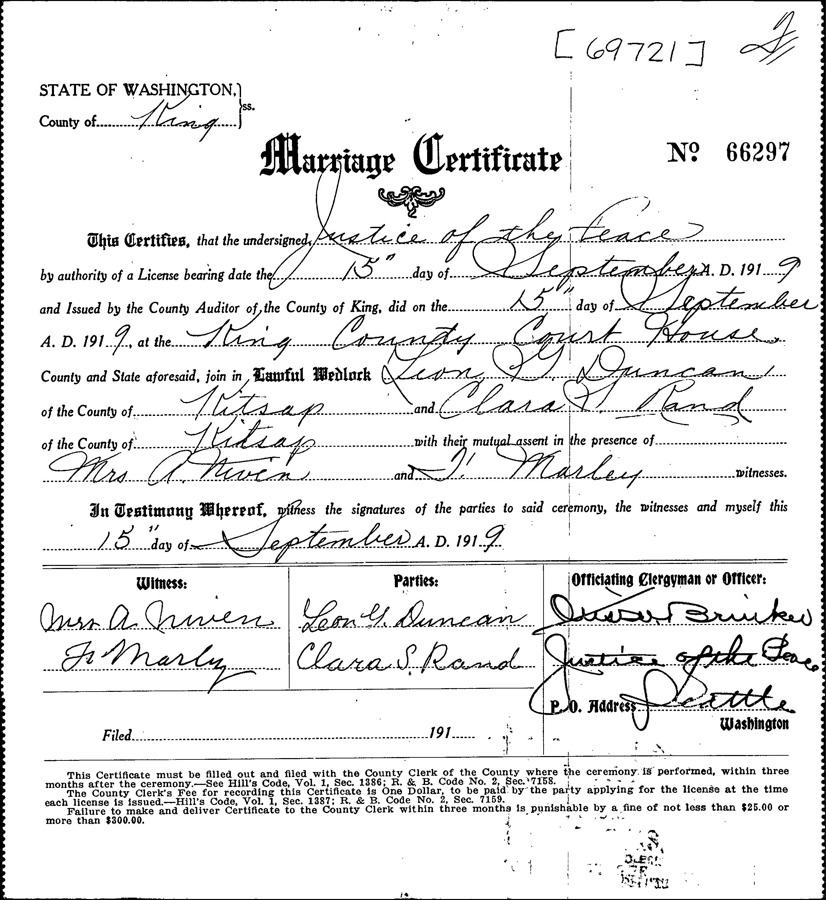 [69721]
STATE OF WASHINGTON, } ss.
County of King
Marriage Certificate
No 66297
This Certifies, that the undersigned, Justice of the Peace
by authority of a License bearing date the 15" day of September A. D. 1919
and Issued by the County Auditor of the County of King, did on the 15" day of September
A. D. 1919, at the King County Court House,
County and State aforesaid, join in Lawful Wedlock Leon G. Duncan
of the County of Kitsap and Clara S. Rand
of the County of Kitsap with their mutual assent in the presence of
Mrs A. Niven and F. Marley witnesses.
In Testimony Whereof, witness the signatures of the parties to said ceremony, the witnesses and myself this
15" day of September A. D. 1919
Witness: Parties: Officiating Clergyman or Officer:
Mrs. A. Niven Leon G. Duncan Brinker
Marley Clara S. Rand Justice of the Peace
P. O. Address Seattle
Washington
Filed 191
This Certificate must be filled out and filed with the County Clerk of the County where the ceremony is performed, within three
months after the ceremony.—See Hill's Code, Vol. 1, Sec. 1386; R. & B. Code No. 2, Sec. 7158.
The County Clerk's Fee for recording this Certificate is One Dollar, to be paid by the party applying for the license at the time
each license is issued.—Hill's Code, Vol. 1, Sec. 1387; R. & B. Code No. 2, Sec. 7159.
Failure to make and deliver Certificate to the County Clerk within three months is punishable by a fine of not less than $25.00 or
more than $300.00.